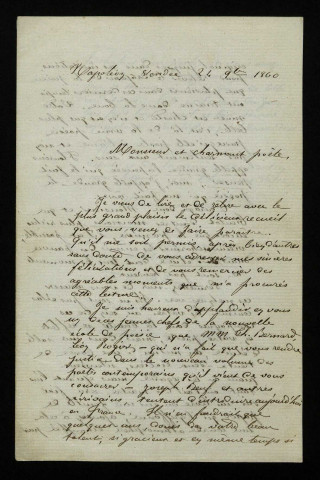 Napoléon Vendée 24 9bre 1860
Monsieur et charmant poète,
Je viens de lire et de relire avec le
plus grand plaisir le délicieux recueil
que vous venez de faire paraître.
Qu'il me soit permis, après bien d'autres
sans doute, de vous adresser mes sincères
félicitations et de vous remercier des
agréables moments que m'a procurés
cette lecture.
Je suis heureux d'applaudir en vous
un des jeunes chefs de la nouvelle
école de poésie que MM Th. Bernard,
qui n'a fait que vous rendre
justice dans le nouveau volume des
poètes contemporains qu'il vient de vous
consacrer et autres
écrivains tentent d'introduire aujourd'hui
en France. Il n'en faudrait que
quelques uns doués de votre beau
talent, si gracieux et en même temps si